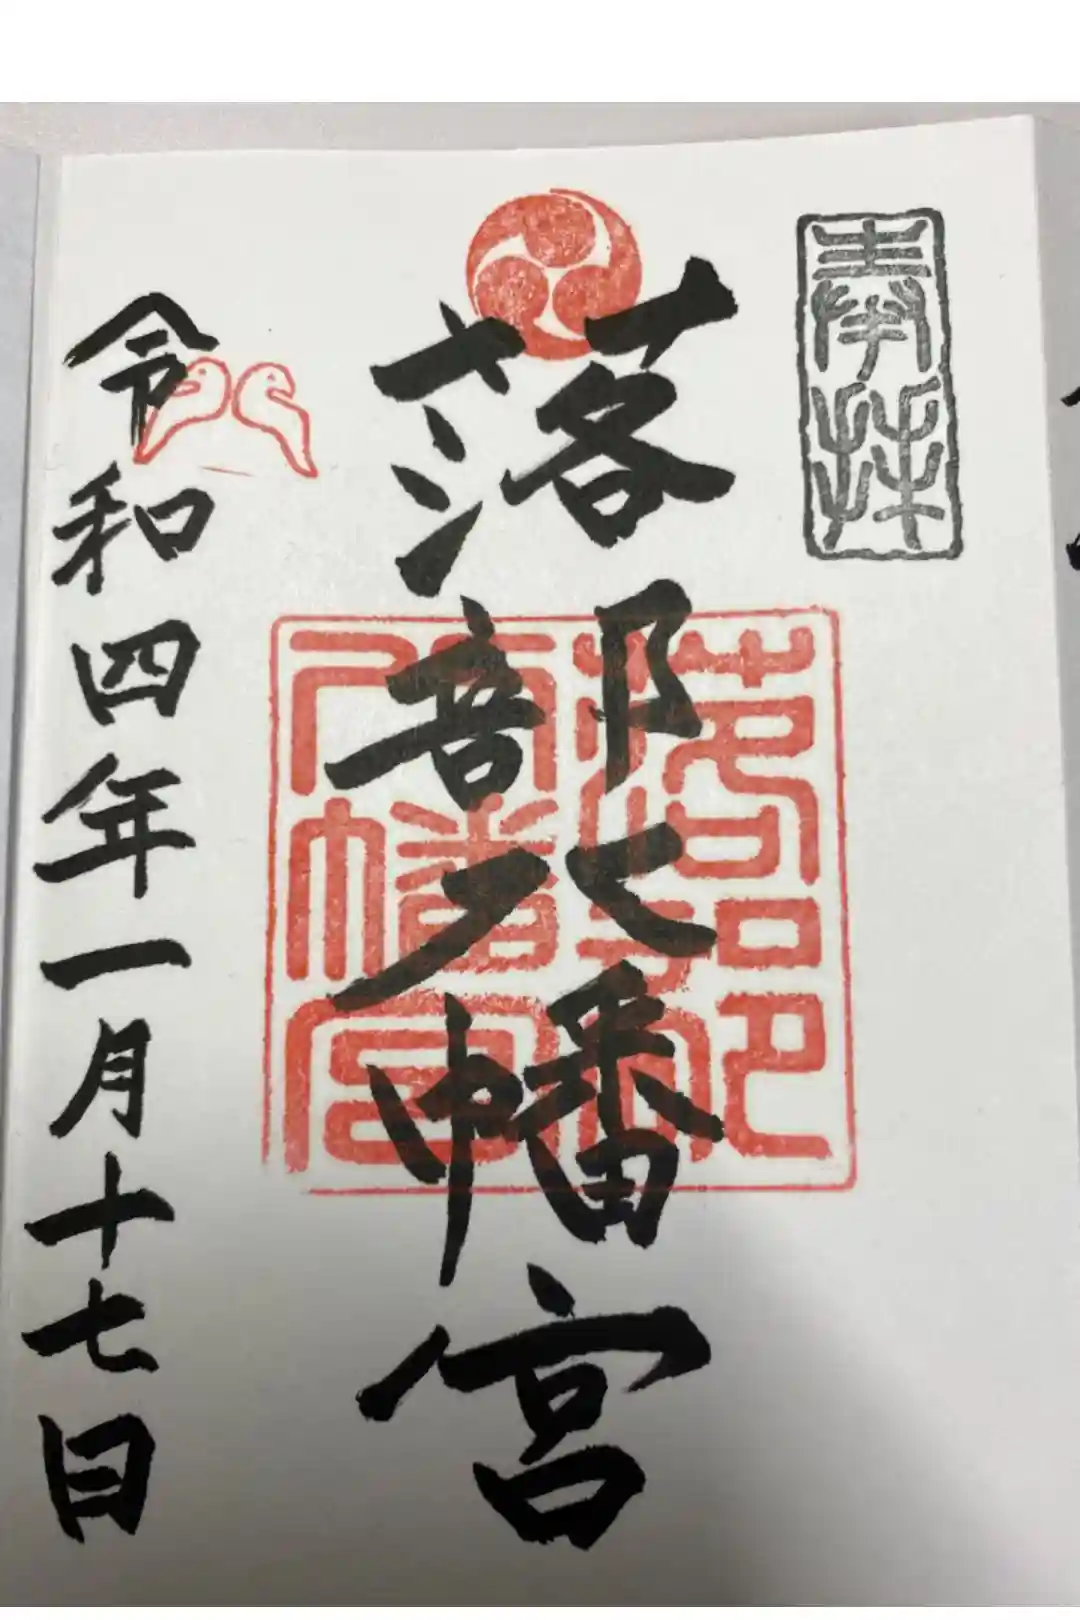 奉拝
落部八幡宮
落部八幡宮
令和四年一月十七日